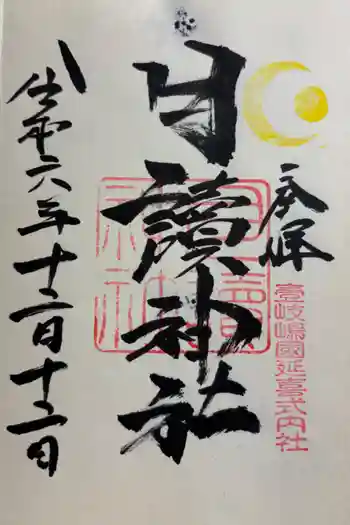 奉拝
壹岐嶋國延喜式内社
月讀神社
月讀神社
令和六年十二月十二日